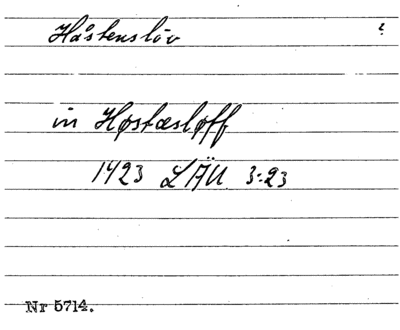 Håstenslöv ?
in Høstæsløff
1423 LÄU 3:23
Nr 5714.